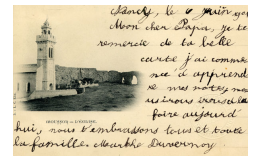 Nancy, le 6 juin 
Mon cher Papa, je te
remercie de ta belle
carte j'ai commen
cé à apprendr
e mes notes, nous
irons
foire aujourd
hui, nous t'embrassons tous et toute
la famille. Marthe Duvernoy